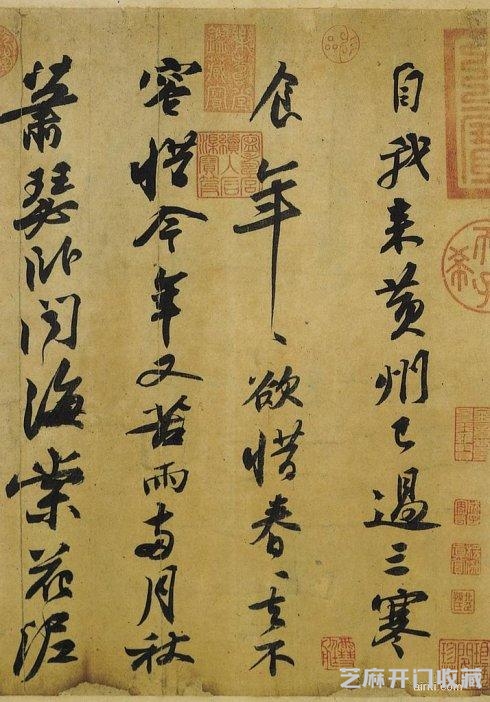 自我来黄州已過三寒
食年〻欲惜春〻去不
容惜今年又苦雨兩月秋
蕭瑟卧聞海棠花泥
芝麻开口收藏